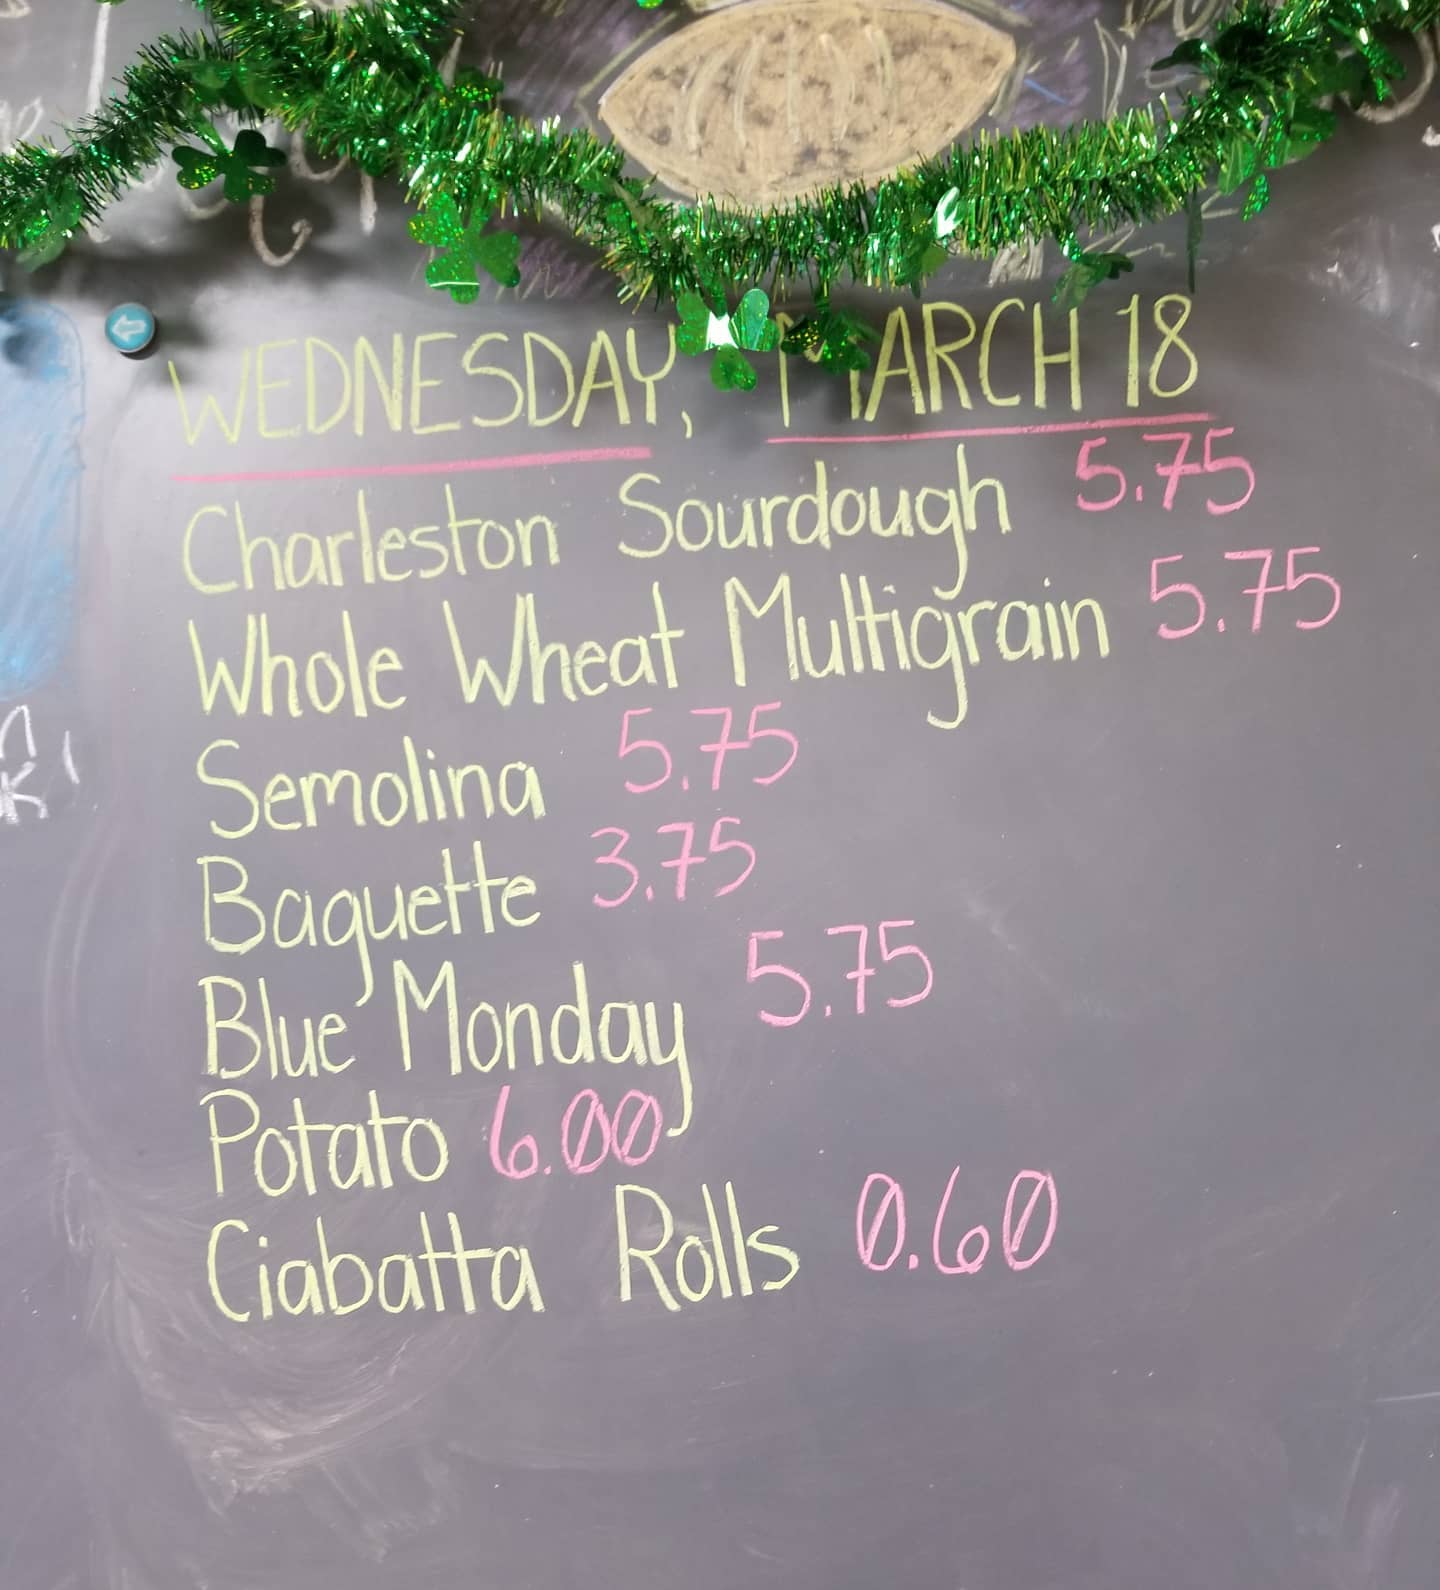 WEDNESDAY, MARCH 18
Charleston Sourdough 5.75
Whole Wheat Multigrain 5.75
Semolina 5.75
Baguette 3.75
Blue Monday 5.75
Potato 6.00
Ciabatta Rolls 0.60